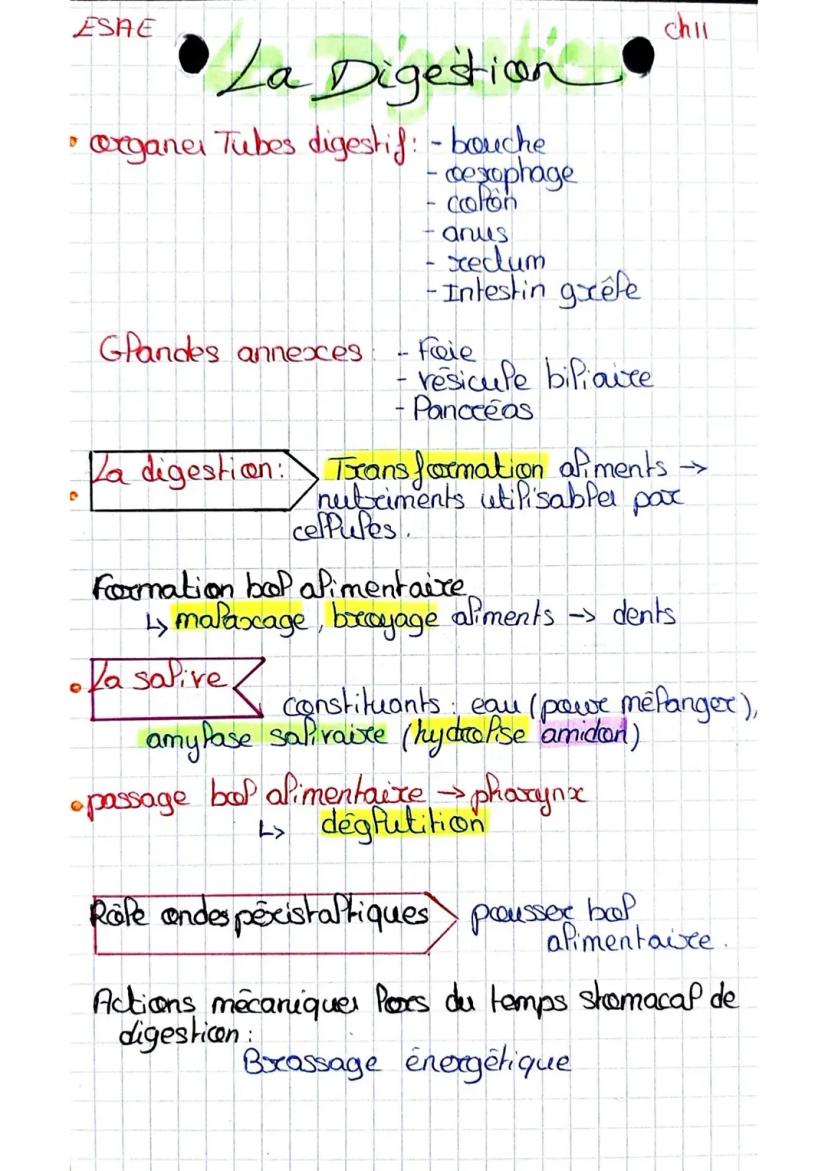 ESAE
ch11
La Digestion
organes Tubes digestif: - bouche
- oesophage
- colôn
- anus
- rectum
- Intestin grêle
Glandes annexes: - Foie
- vésicule biliaire
- Pancréas
La digestion: Transformation aliments →
nutriments utilisables par
cellules.
Formation bol alimentaire
↳ malaxage, broyage aliments → dents
La salive
constituants : eau (pour mélanger),
amylase salivaire (hydrolise amidon)
passage bol alimentaire → pharynx
↳ déglutition
Rôle ondes péristaltiques pousser bol
alimentaire.
Actions mécaniques lors du temps stomacal de
digestion :
Brassage énergétique